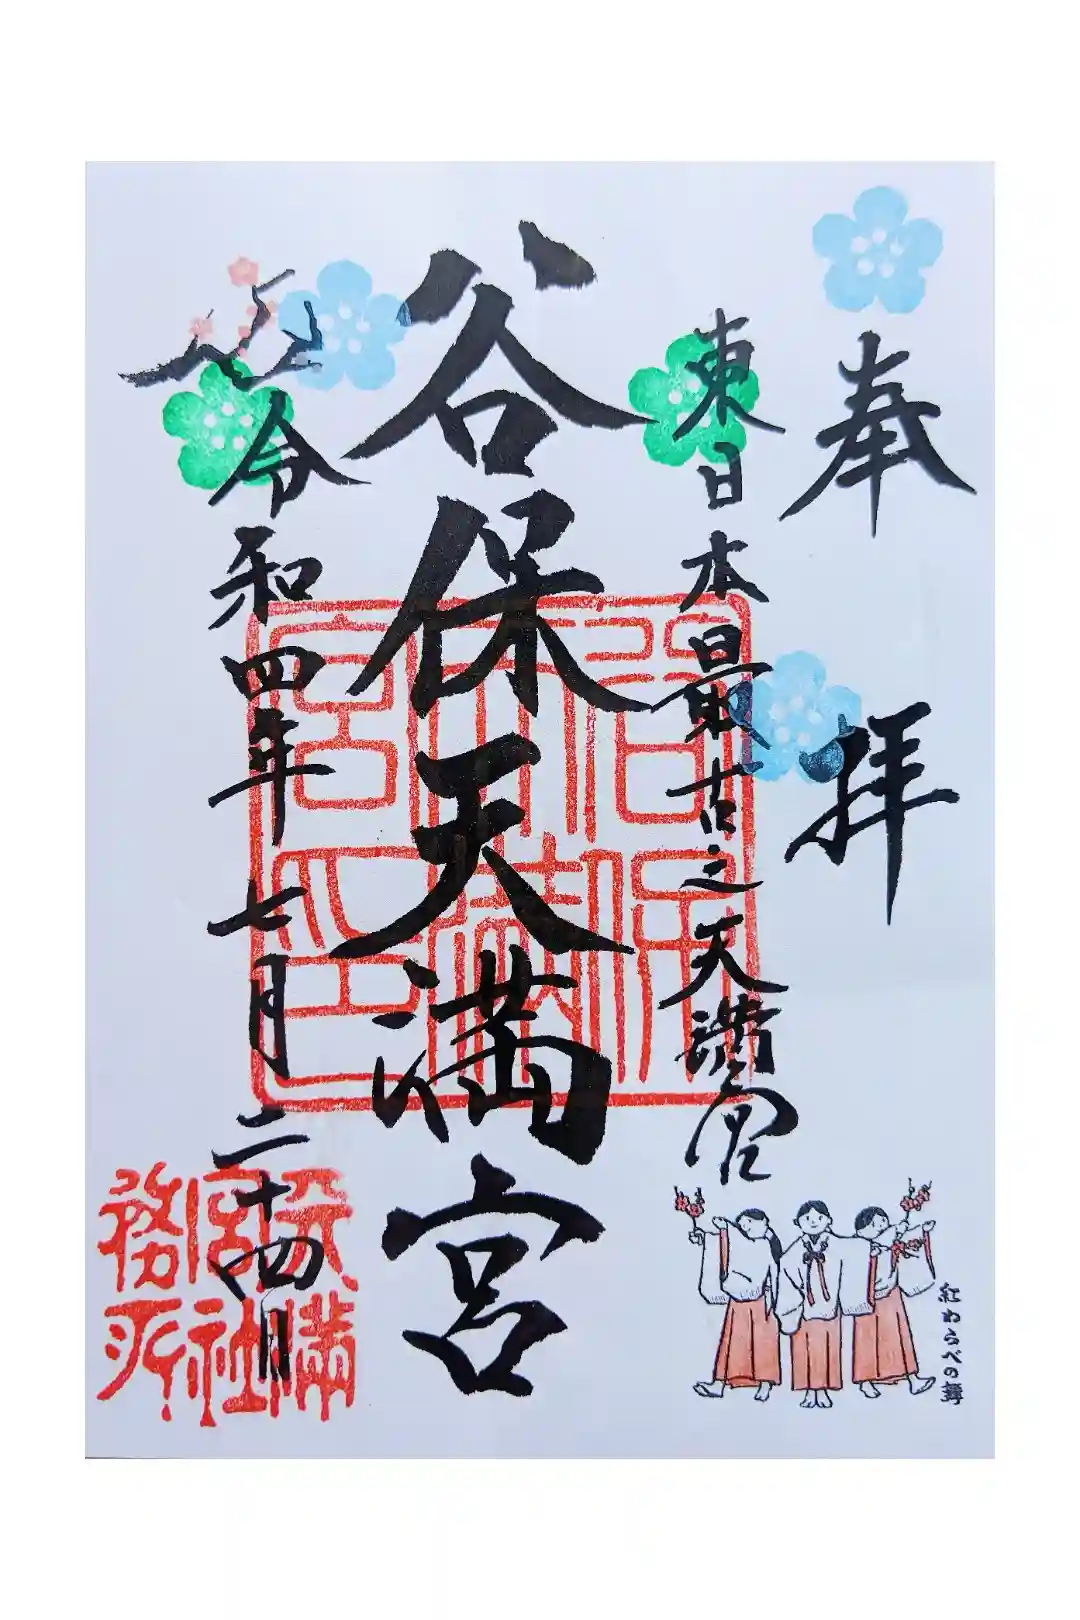 奉拝
東日本最古之天満宮
谷保天満宮
令和四年七月二十四日
谷保天満宮印
天満宮社務所
紅わらべの舞